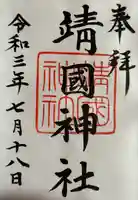 奉拝
靖國神社
令和三年七月十八日
靖國神社